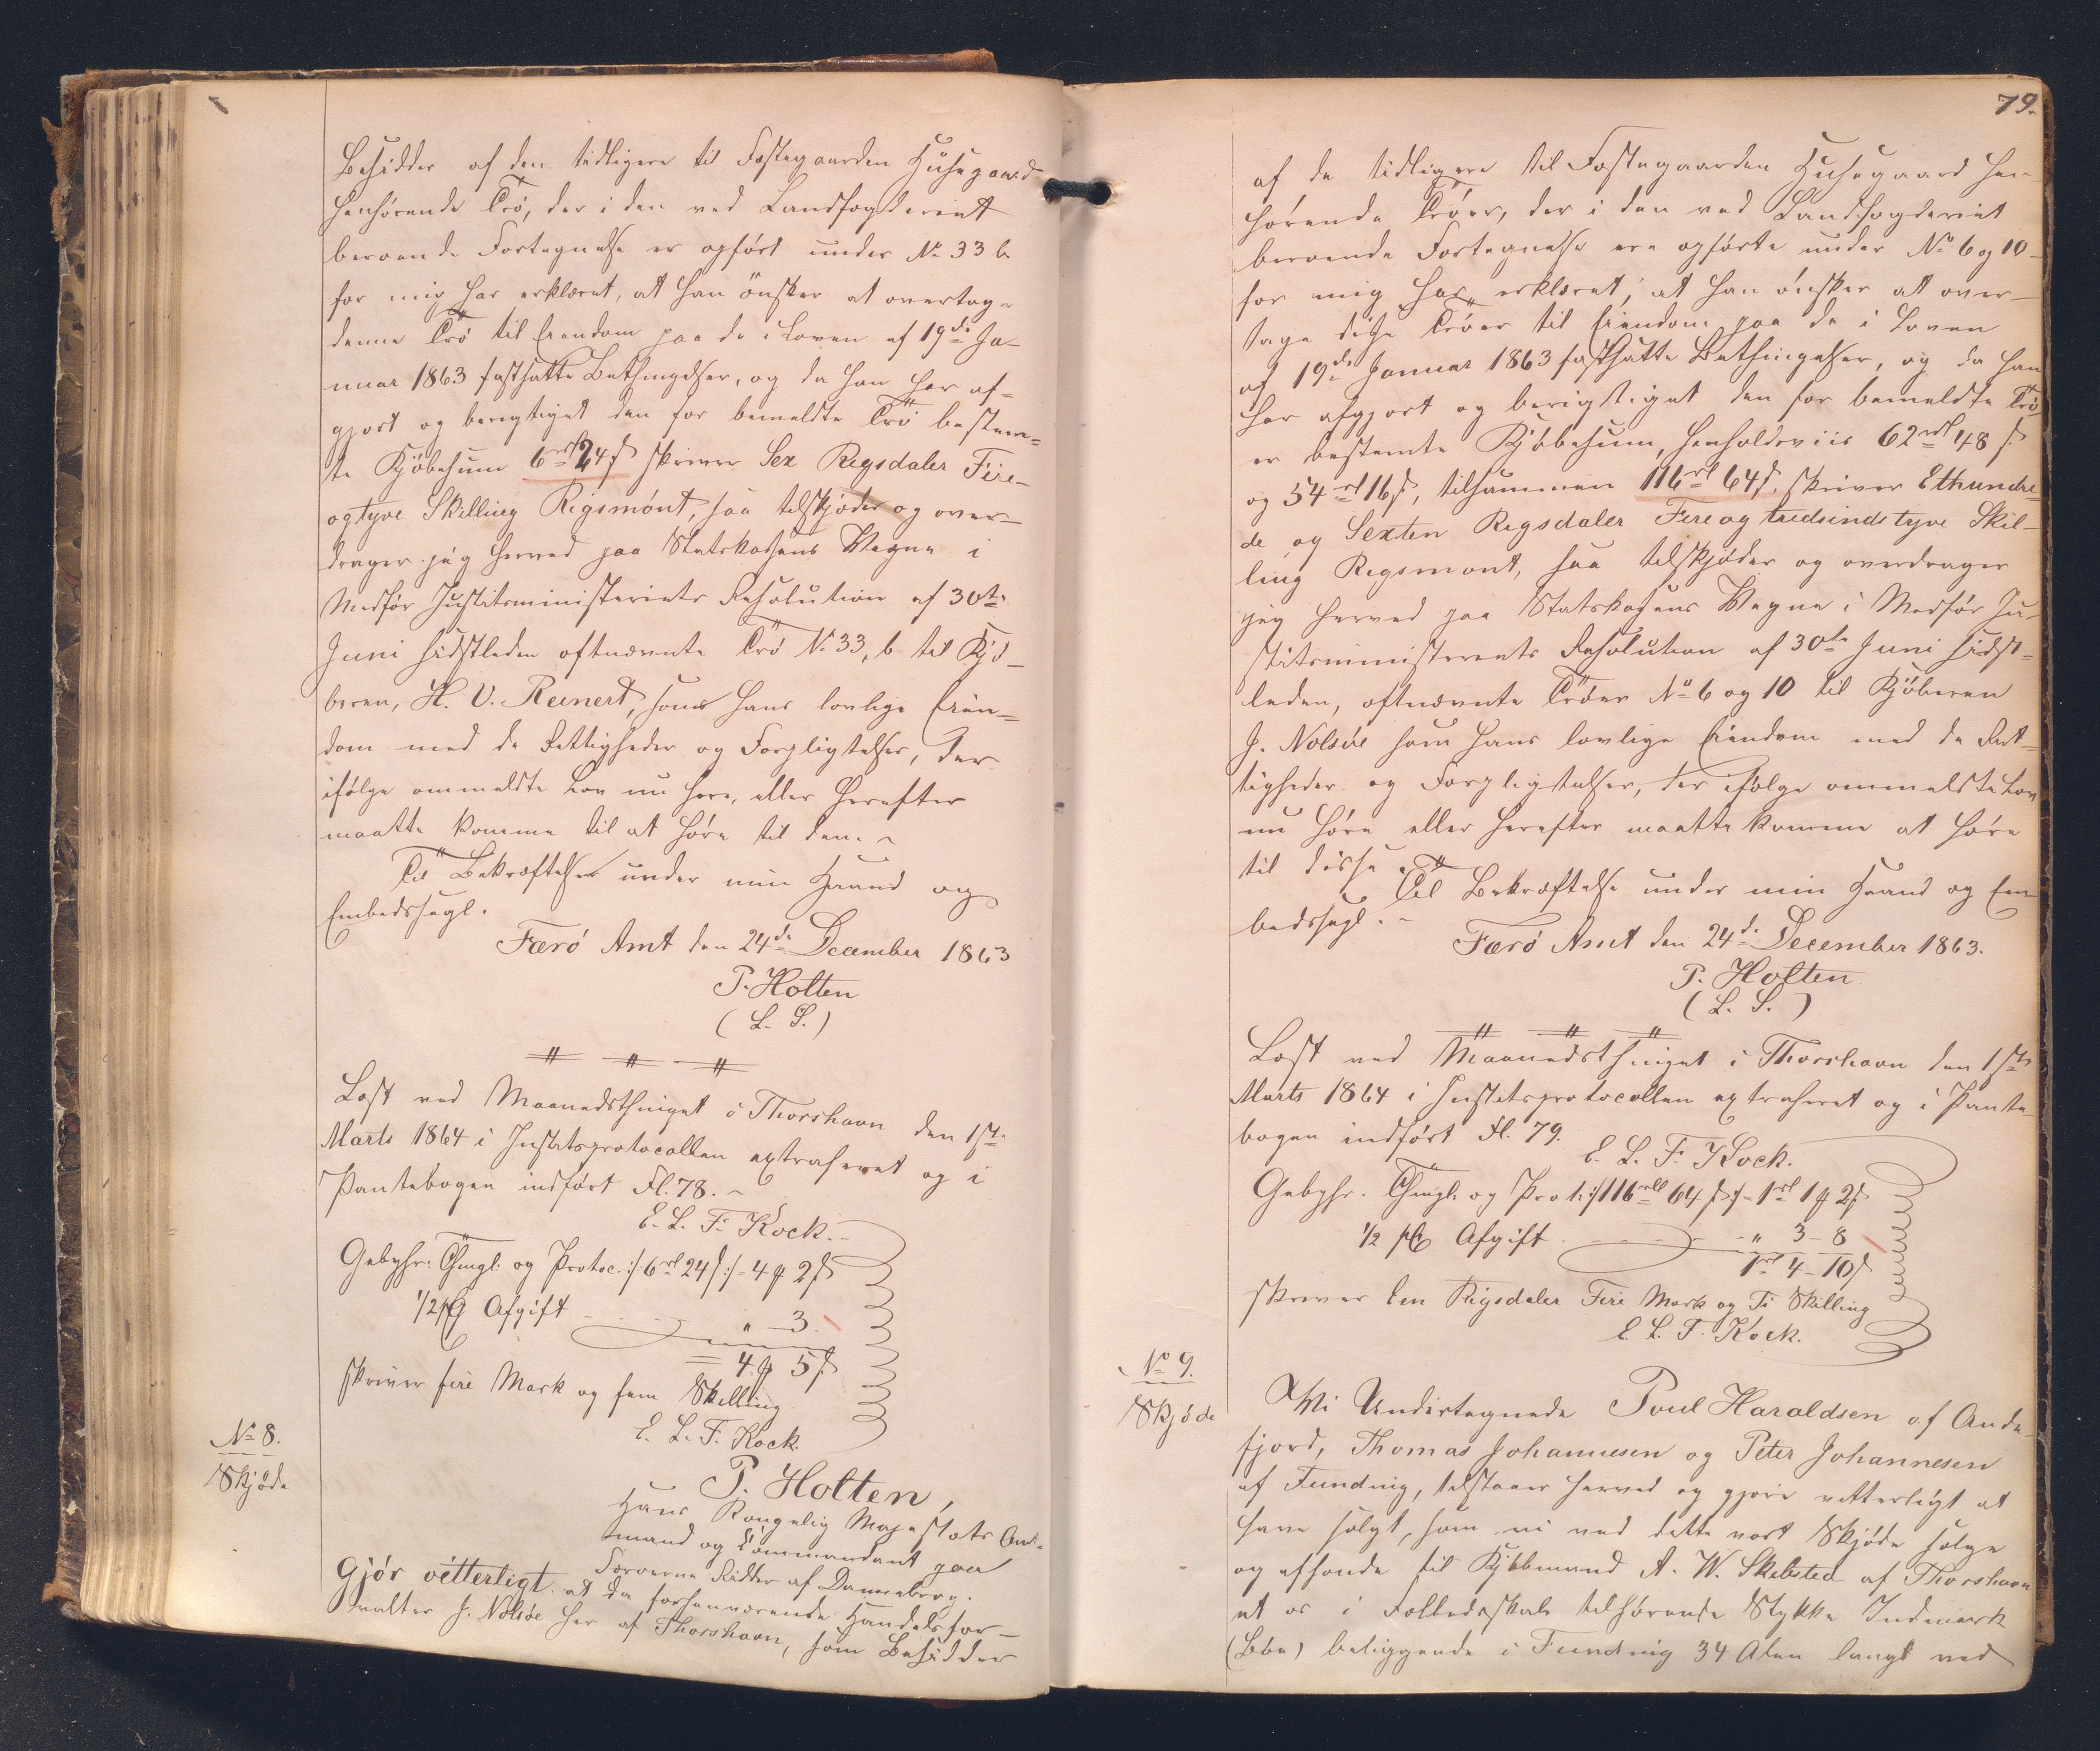 Besidder af den tidligere til Fæstegaarden Húsegaard
henhørende Trö, der i den ved Landfogderiet
beroende Fortegnelse er opført under No 33 b
for mig har erklæret, at han önsker at overtage
denne Trö til Eiendom paa de i Loven af 19de Ja-
nuar 1863 fastsatte Betingelser, og da han har af-
gjort og berigtiget den for bemeldte Trö bestem-
te Kjöbesum 6rd 24 s skriver Sex Rigsdaler Fire-
ogtyve Skilling Rigsmønt, saa tilskjøder og over-
drager jeg herved paa Statskassens Vegne i
Medfør Justitsministeriets Resolution af 30te
Juni sidstleden oftnævnte Trö No 33, b til Kjö-
beren, H. V. Reinert, som hans lovlige Eien-
dom med de Rettigheder og Forpligtelser, der
ifølge ommeldte Lov nu høre, eller herefter
maatte komme til at høre til den. ~
Til Bekræftelse under min Haand og
Embedssegl.
Færö Amt den 24de December 1863
P. Holten
(L. S.)
Læst ved Maanedsthinget i Thorshavn den 1ste
Marts 1864 i Justitsprotocollen extraheret og i
Pantebogen indført Fl. 78. ~
E. L. F. Kock.
Gebyhr: Thingl: og Protoc. :/: 6rd 24 s :/: - 4 # 2 s
1/2 pC Afgift " - 3.
= 4 # 5 s
skriver fire Mark og fem Skilling
E. L. F. Kock.
No 8.
Skjøde
P. Holten,
Hans Kongelig Majestæts Amt-
mand og Commandant paa
Færøerne Ridder af Dannebrog.
Gjör vitterligt: at da forhenværende Handelsfor-
valter J. Nolsöe her af Thorshavn, som Besidder
79.
af de tidligere til Fæstegaarden Húsegaard hen-
hørende Tröer, der i den ved Landfogderiet
beroende Fortegnelse ere opførte under No 6 og 10
for mig har erklæret, at han ønsker at over-
tage disse Tröer til Eiendom paa de i Loven
af 19de Januar 1863 fastsatte Betingelser, og da han
har afgjort og berigtiget den for bemeldte Trö-
er bestemte Kjöbesum, henholdsviis 62rd 48 s
og 54rd 16 s, tilsammen 116rd 64 s, skriver Ethundre-
de og Sexten Rigsdaler Fireogtredsindstyve Skil-
ling Rigsmønt, saa tilskjøder og overdrager
jeg herved paa Statskassens Vegne i Medför Ju-
stitsministeriets Resolution af 30te Juni sidst-
leden, oftnævnte Tröer No 6 og 10 til Kjöberen
J. Nolsöe som hans lovlige Eiendom med de Ret-
tigheder og Forpligtelser, der ifølge ommeldte Lov
nu høre eller herefter maatte komme at høre
til disse. ~
Til Bekræftelse under min Haand og Em-
bedssegl. ~
Færö Amt den 24de December 1863.
P. Holten
(L. S.)
Læst ved Maanedsthinget i Thorshavn den 1ste
Marts 1864 i Justitsprotocollen extraheret og i Pante-
bogen indført Fl. 79.
E. L. F. Kock.
Gebyhr. Thingl: og Prot: :/: 116rd 64 s :/: - 1rd 1 # 2 s
1/2 pC Afgift - " 3 - 8
1rd 4 - 10 s
skriver Een Rigsdaler Fire Mark og Ti Skilling
E. L. F. Kock.
No 9.
Skjøde
Wi Undertegnede Poul Haraldsen af Ande-
fjord, Thomas Johannesen og Peter Johannesen
af Funding, tilstaaer herved og gjøre vitterligt at
have solgt, som vi ved dette vort Skjøde sælge
og afhænde til Kjöbmand A. W. Skibsted af Thorshavn
et os i Fælledsskab tilhørende Stykke Indmark
(Bøe) beliggende i Funding 34 Alen langt ved